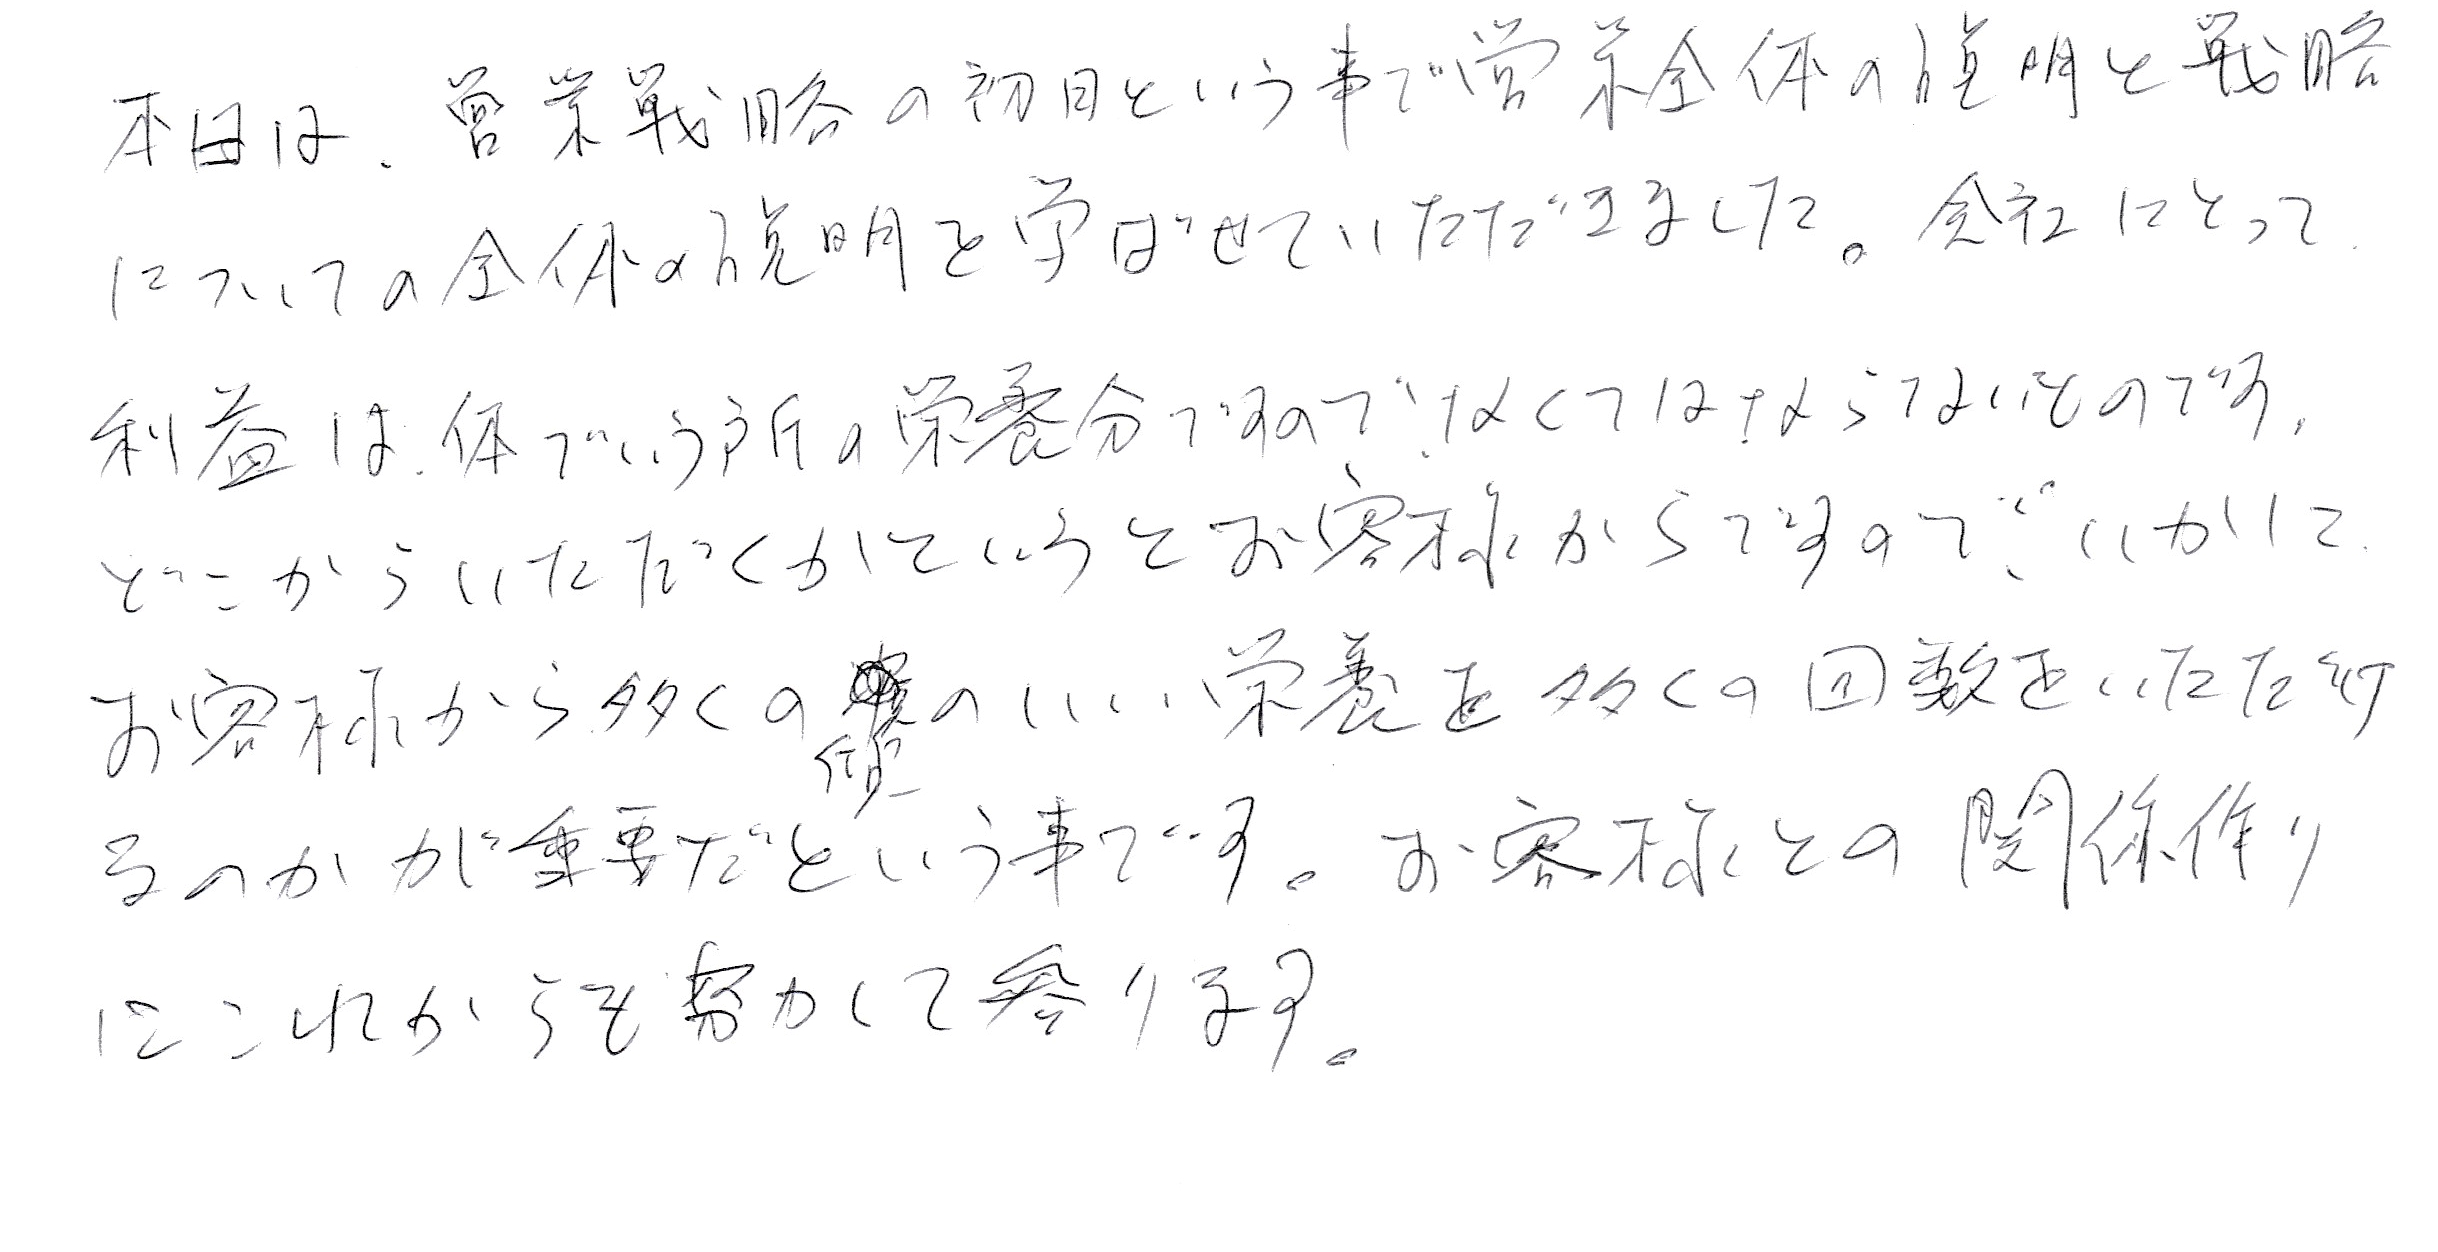 本日は、営業戦略の初日という事で営業全体の説明と戦略
についての全体の説明を学ばせていただきました。会社にとって
利益は、体でいう所の栄養分ですので、なくてはならないものです。
どこからいただくかというとお客様からですので、いかにして
お客様から多くののいい栄養を多くの回数をいただけ
るのかが重要だという事です。お客様との関係作り
にこれからも努力して参ります。